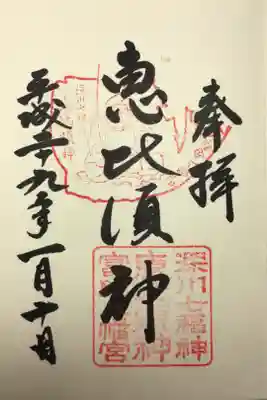 奉拝
恵比須神
平成二十九年一月十日
深川七福神
恵比須神
富岡八幡宮